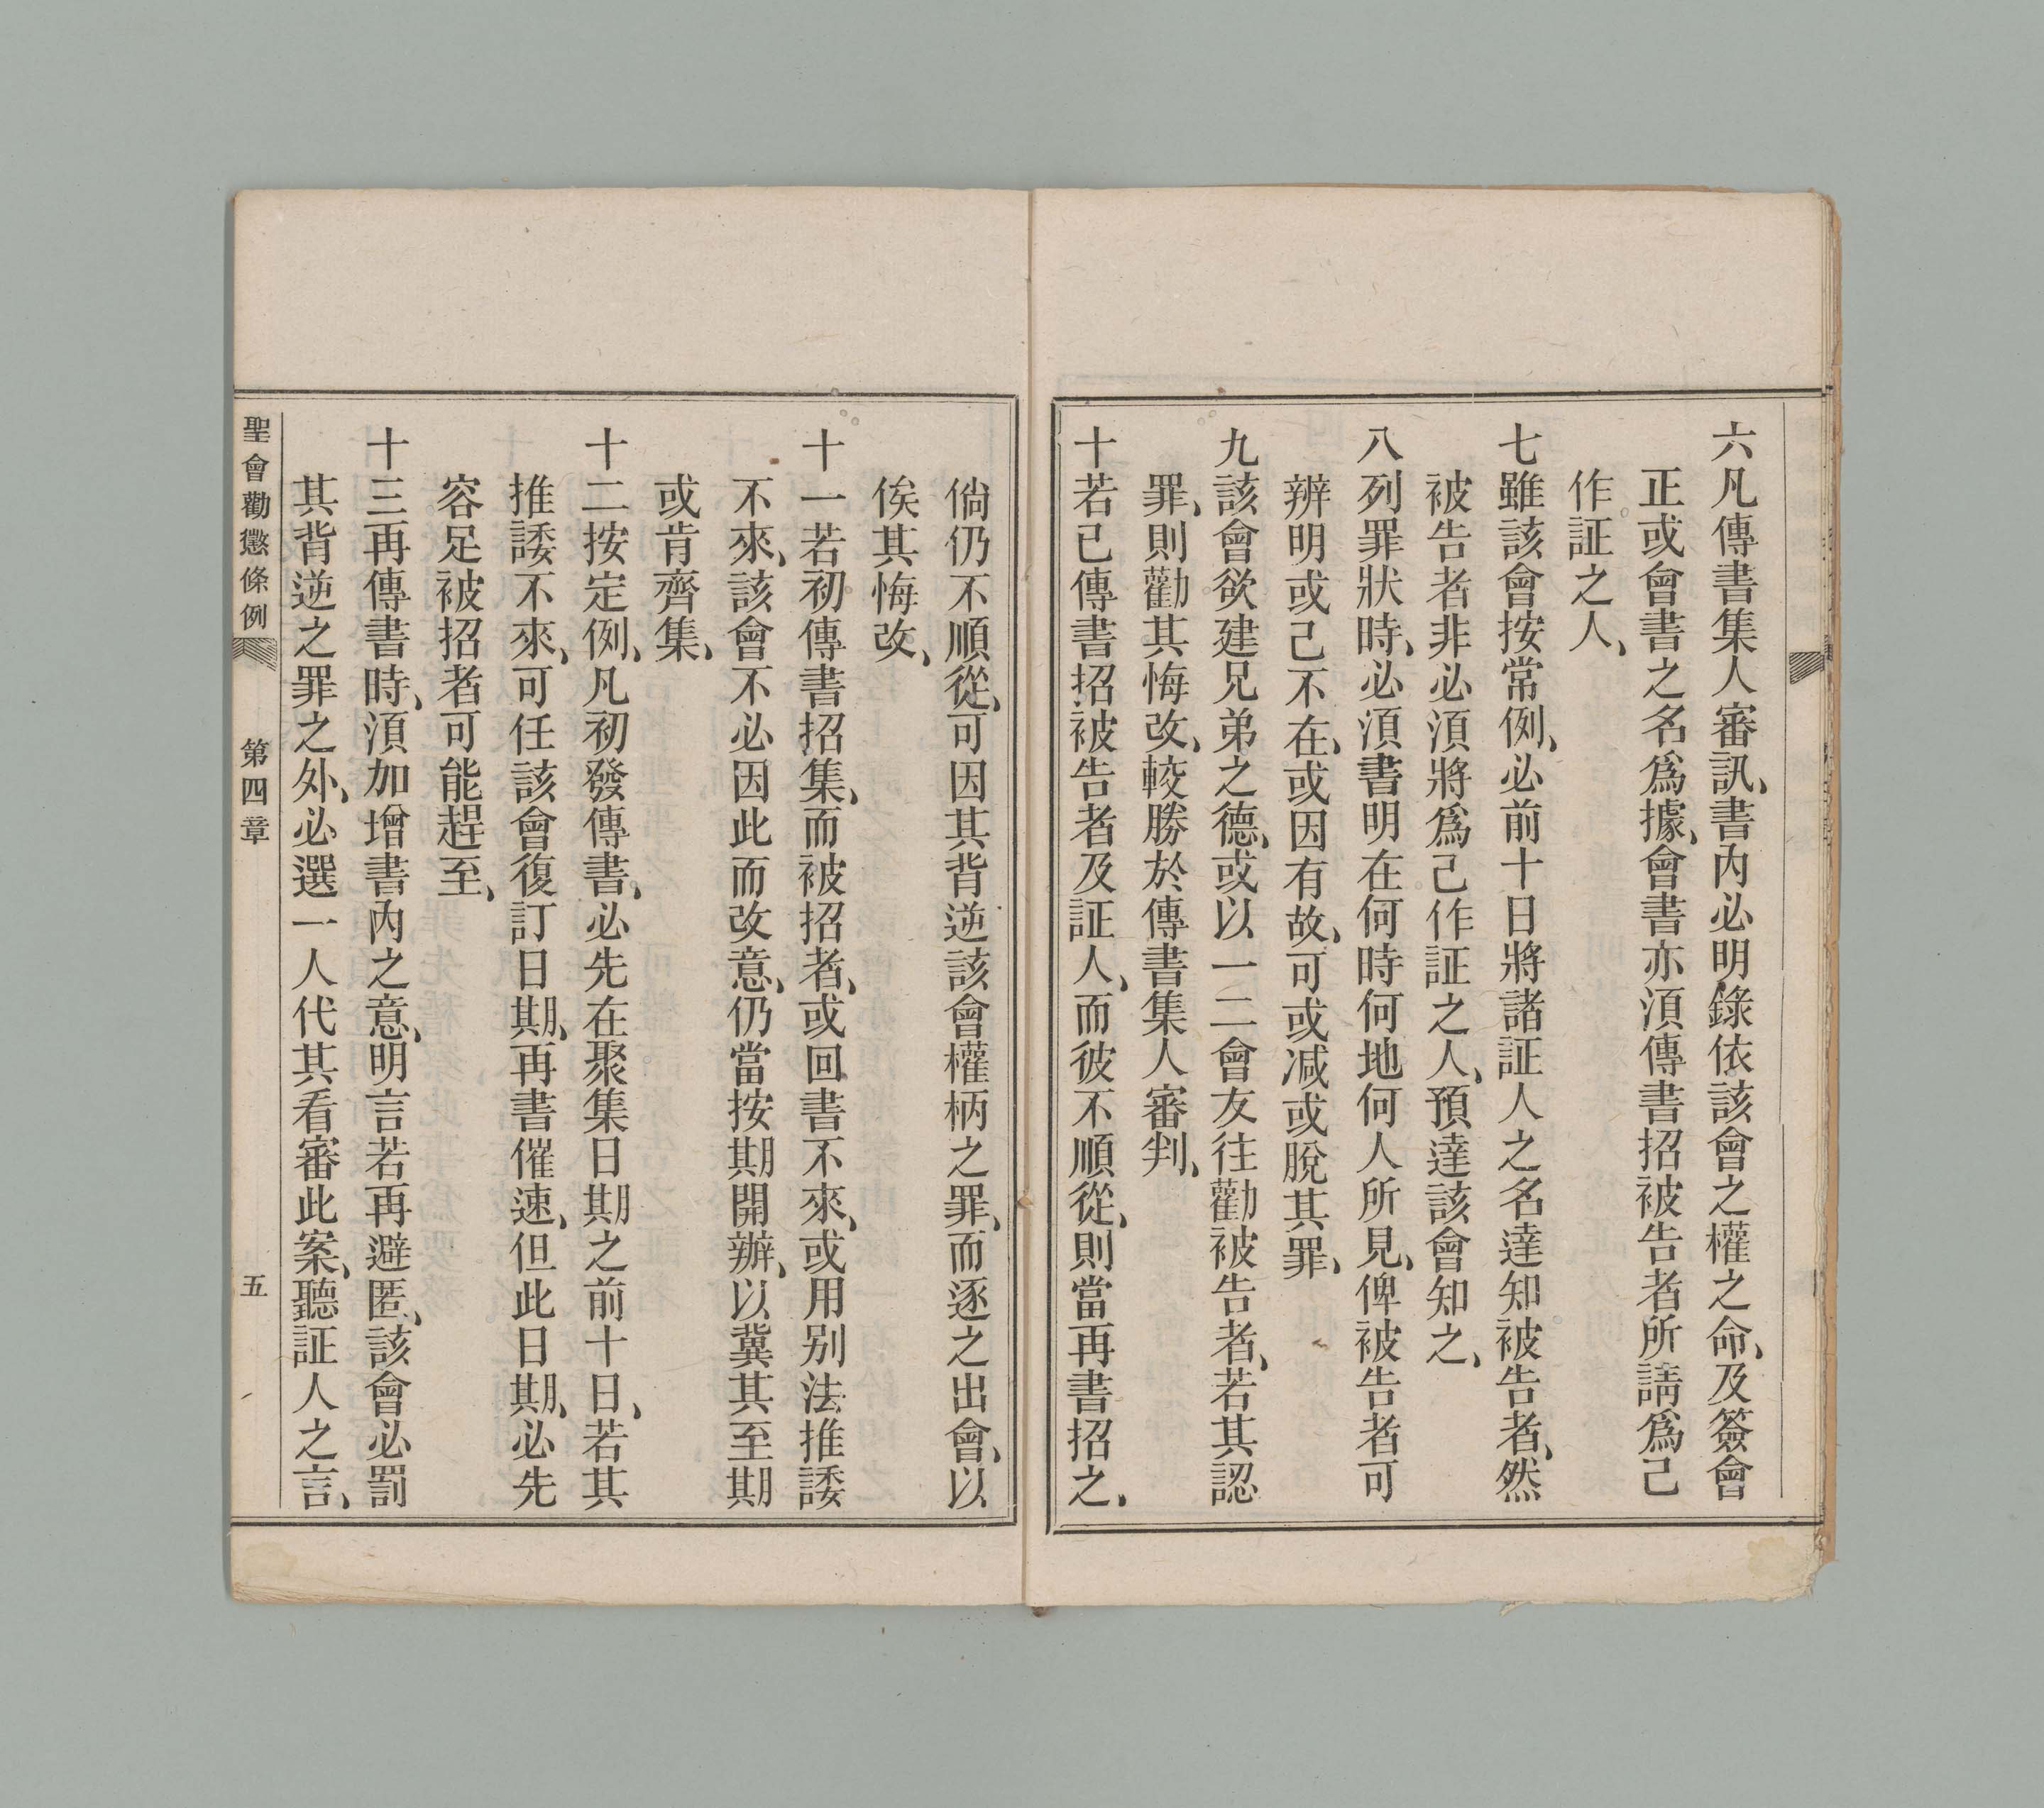 六凡傳書集人審訊、書內必明錄依該會之權之命、及簽會
正或會書之名爲據、會書亦須傳書招被告者所請爲己
作証之人、
七雖該會按常例、必前十日將諸証人之名達知被告者、然
被告者非必須將爲己作証之人、預達該會知之、
八列罪狀時、必須書明在何時何地何人所見、俾被告者可
辨明或己不在、或因有故、可或減或脫其罪、
九該會欲建兄弟之德、或以一二會友往勸被告者、若其認
罪、則勸其悔改、較勝於傳書集人審判、
十若已傳書招被告者及証人、而彼不順從、則當再書招之、
倘仍不順從、可因其背逆該會權柄之罪、而逐之出會、以
俟其悔改、
十一若初傳書招集、而被招者、或回書不來、或用别法推諉
不來、該會不必因此而改意、仍當按期開辦、以冀其至期
或肯齊集、
十二按定例、凡初發傳書、必先在聚集日期之前十日、若其
推諉不來、可任該會復訂日期、再書催速、但此日期、必先
容足被招者可能趕至、
十三再傳書時、須加增書內之意、明言若再避匿、該會必罰
其背逆之罪之外、必選一人代其看審此案、聽証人之言、
聖會勸懲條例 第四章 五